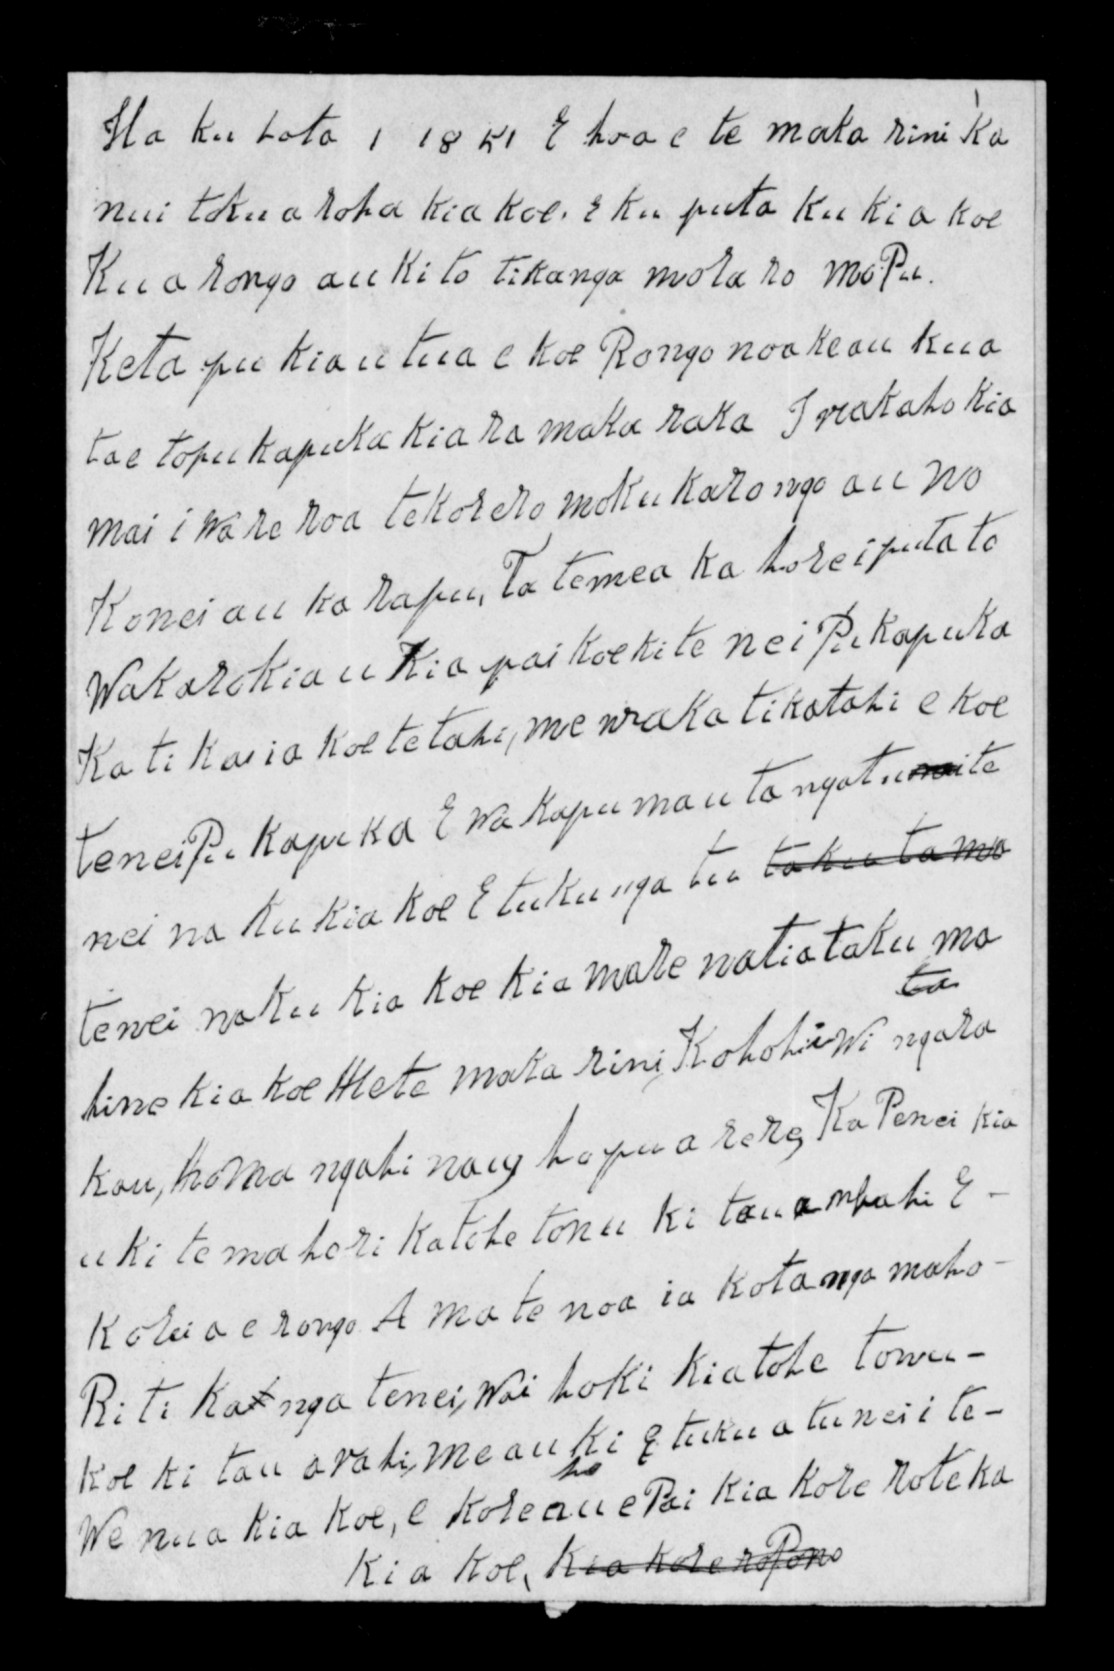 Ha ku tata 1 1851 E hoa e te maka rini Ka
nui toku a roha kia koe. E ku puta ku ki a koe
Kua rongo au ki to tikanga mota ro mo Pu.
Keta pu kia u tua e koe Rongo noa ke au kua
tae to pu kapuka kia ra maka raka I wakaho kia
mai i wa re roa te korero moku ka rongo au No
Konei au ka rapu, Ta temea ka hore i puta to
Wakaro kia u Kia pai koe ki te nei Pu kapuka
Ka ti ka ia koe te tahi, me waka tika tahi e koe
tenei Pu kapuka E wa kapu mau ta nga tu mai te
nei na ku kia koe E tuku nga tu taku ta ma
tenei naku kia koe kia mare natia taku ma
ta
hine kia koe H te maka rini, Ko hohi i Wi ngara
kau, Homa ngahi naug hopu a rere, Ka Penei kia
u ki te ma hori Ka tohe tonu ki tau a whahi E -
Korei a e rongo A ma te noa ia ko ta nga maho -
Ri ti kat nga tenei, Wai hoki kia tohe tonu -
koe ki tau a vahi, me au ki E tuku a tu nei i te -
ho
We nua kia koe, e kore au e Pai kia kore ro te ka
Ki a koe, kia kore ro Pono